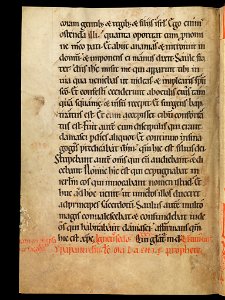 coram gentib; & regib; & filiis isrl. Ego enim
ostendā illi. quanta oporteat eum p nomi
ne meo pati. Et abiit ananias & introiuit in
domū. & imponens ei manus dixit. Saule fra
ter. dn̄s ihc misit me qui apparuit tibi in
uia qua ueniebas ut uideas & implearis spū
sc̄o. Et confestī ceciderunt ab oculis eius tam
quā squame. & uisū recepit. Et surgens bap
tizatus est. Et cum accepisset cibū conforta
tus est. Fuit autē cum discipulis qui erant
damasci p dies aliquot. Et continuo insina
gogis predicabat ihm̄. qm̄ hic est filius dei.
Stupebant autē om̄s qui eū audiebant. & di
cebant. Nonne hic est qui expugnabat in
ierlm̄ eos qui inuocabant nomen istud. &
huc ad hoc uenit. ut uinctos illos duceret
ad principes sacerdotū. Saulus autē multo
magis conualescebat & confundebat iude
os qui habitabant damasci. affirmans qm̄
hic est xp̄c.